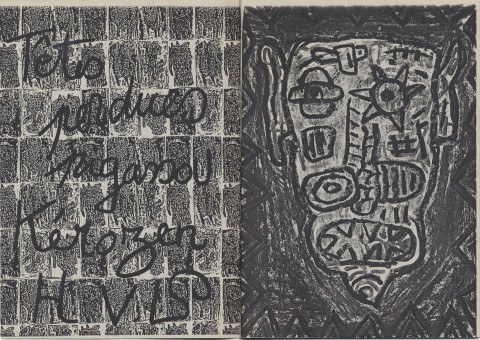 Tetes
perdues
pagassou
Kérozen
H VLS